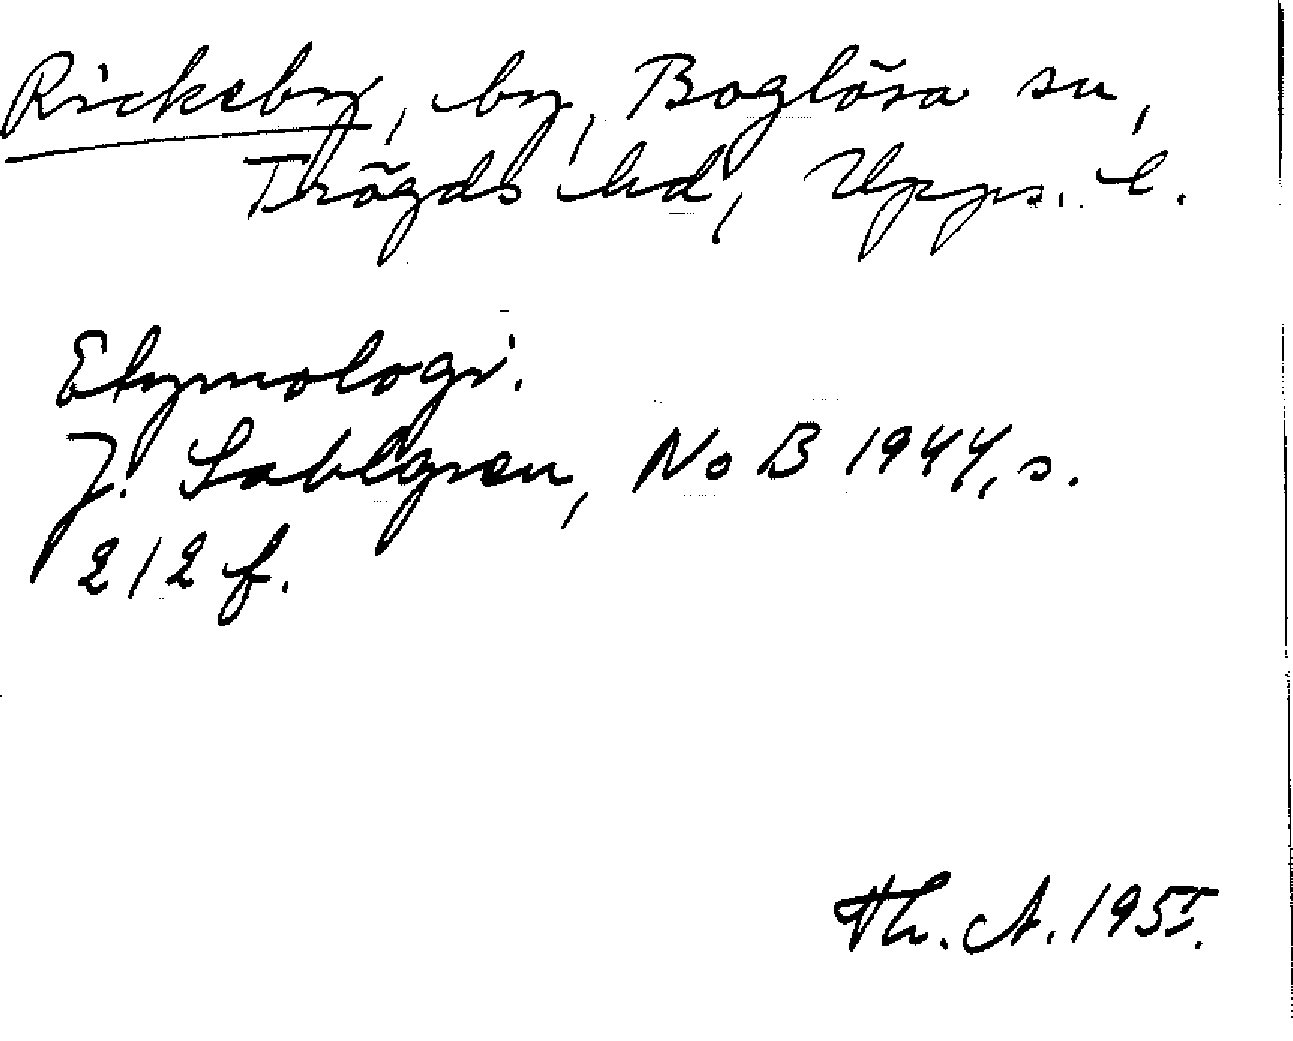 Rickeby, by, Boglösa sn,
Trögds hd, Upps. l.
Etymologi.
J. Sahlgren, NoB 1944, s.
212 f.
Th. A. 1951.